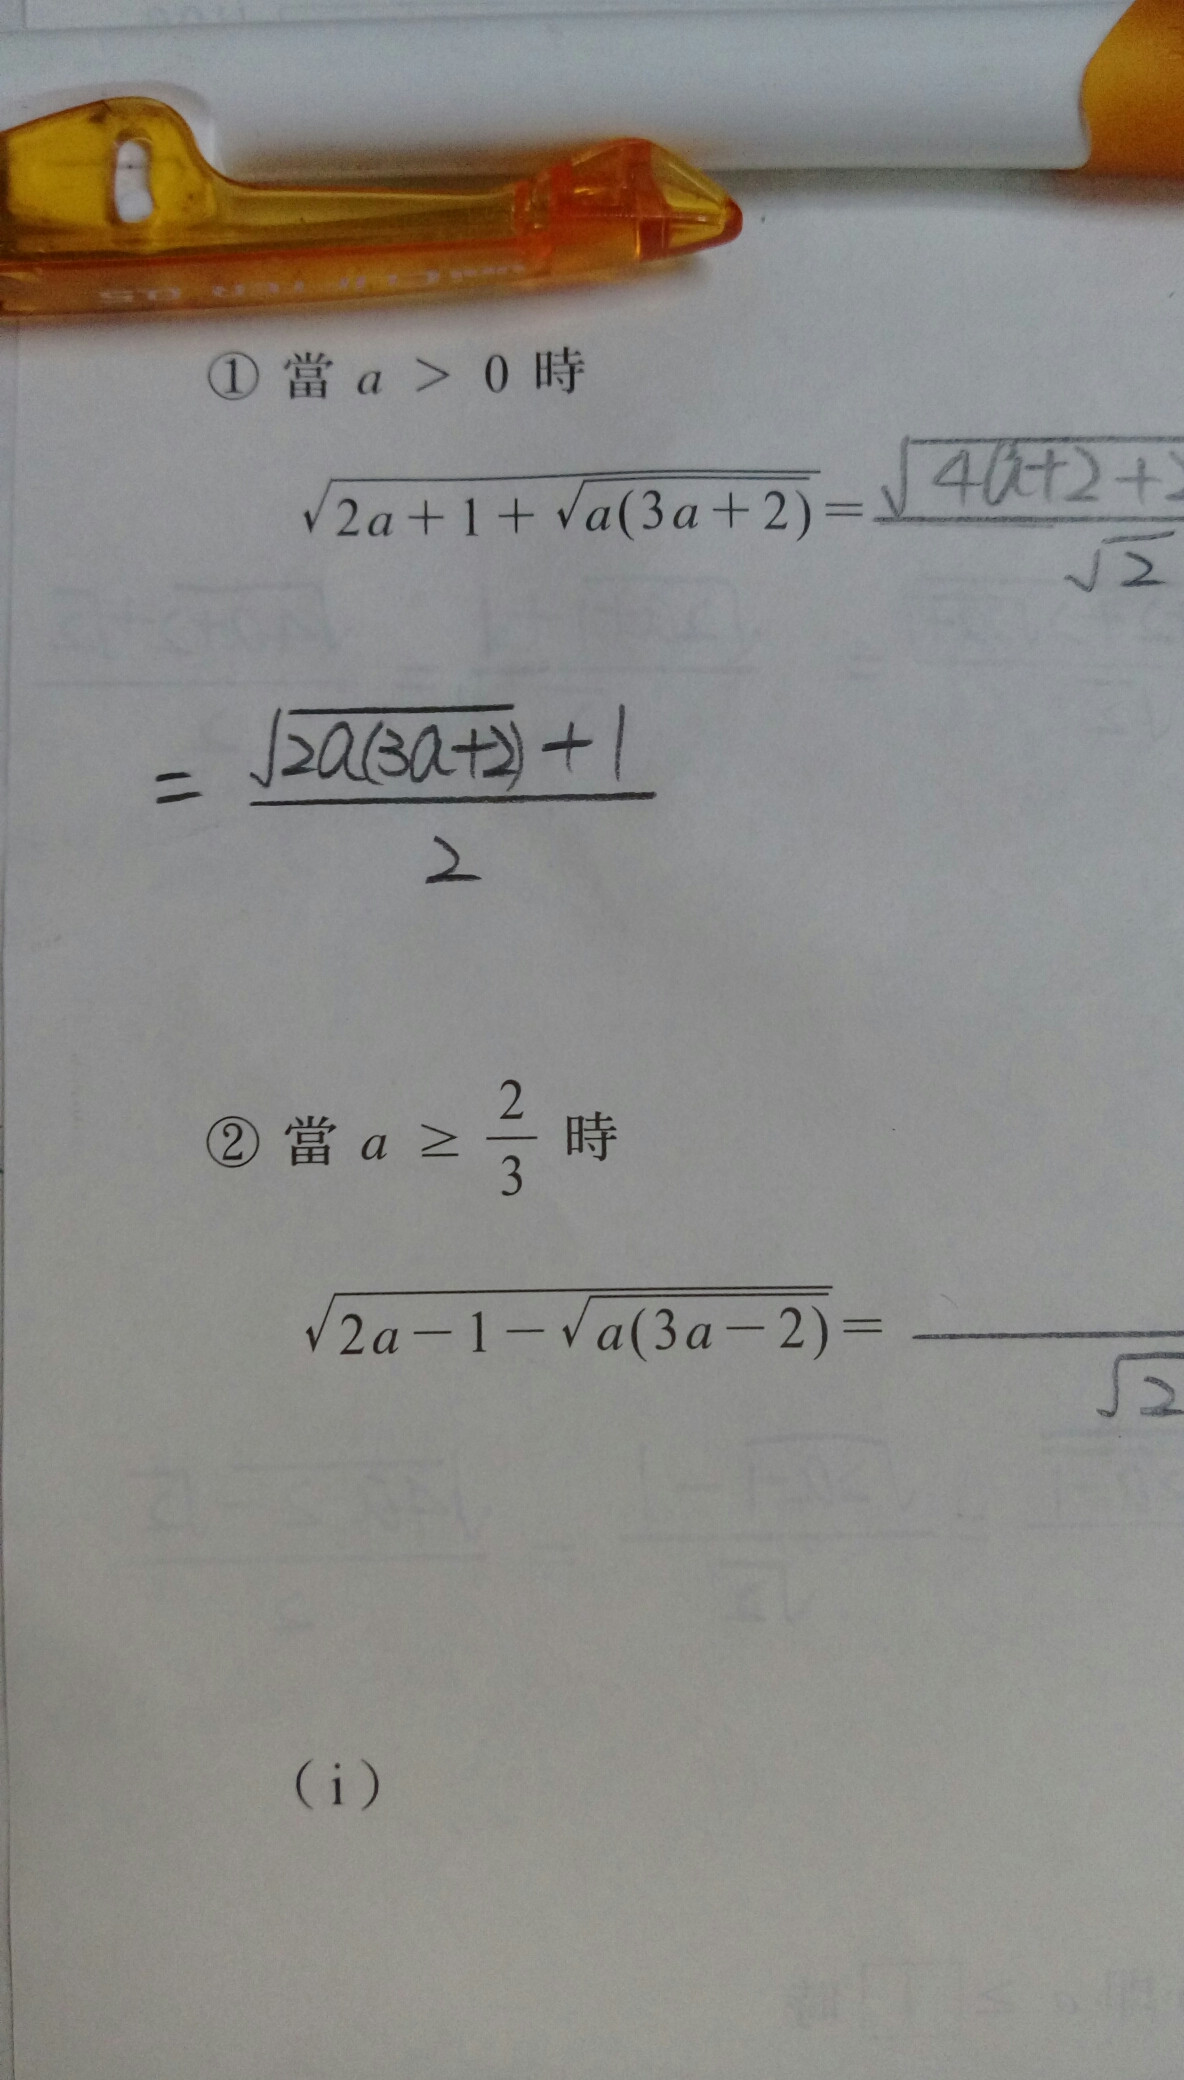 ① 當 a > 0 時
√(2a+1+√(a(3a+2))) = √(4a+2+2
√2
= (√(2a(3a+2)) + 1) / 2
② 當 a ≥ 2/3 時
√(2a−1−√(a(3a−2))) =
√2
(i)